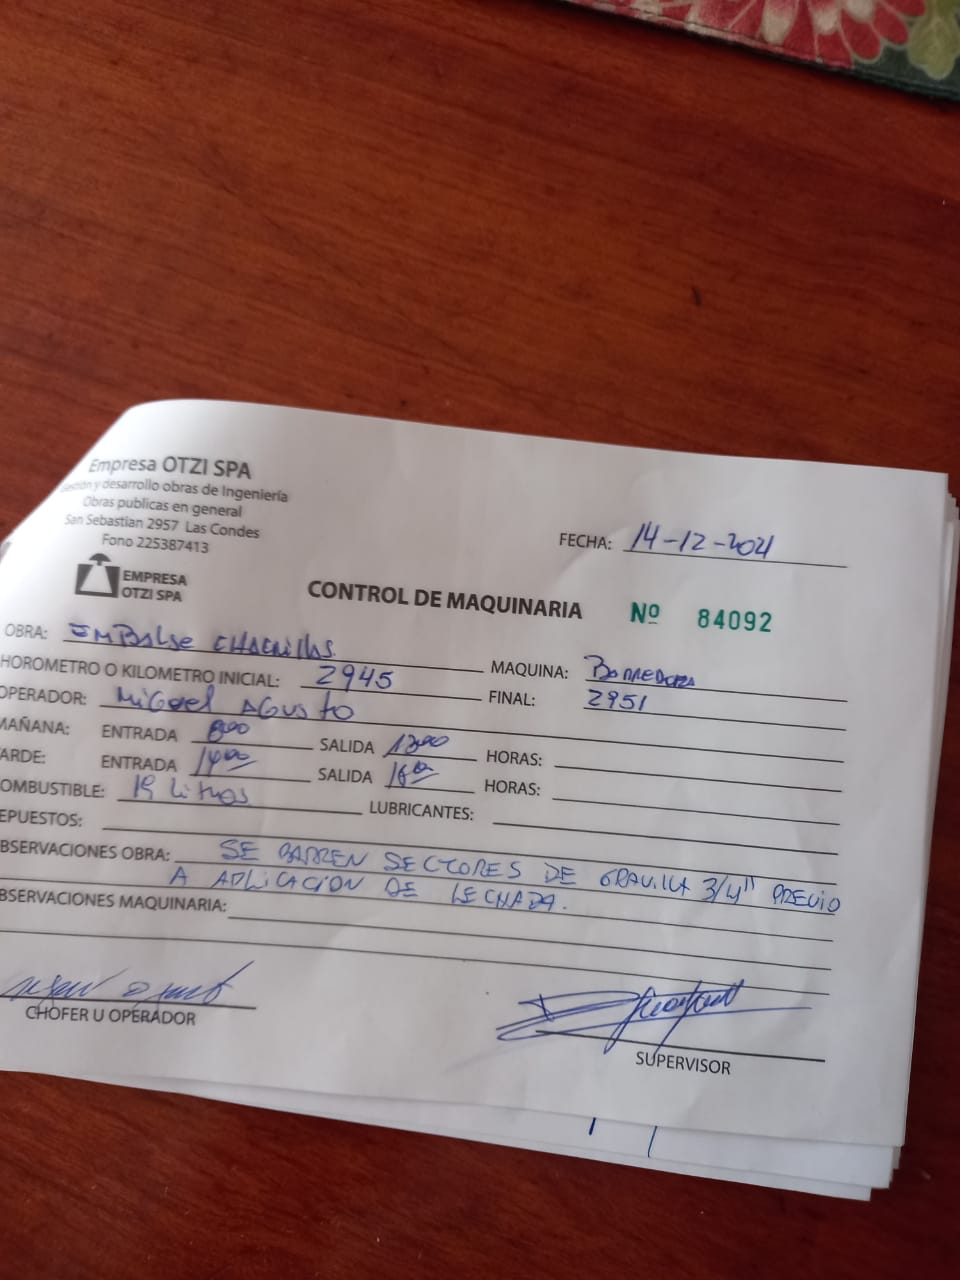 Empresa OTZI SPA
y desarrollo obras de Ingeniería
Obras publicas en general
San Sebastian 2957 Las Condes
Fono 225387413
EMPRESA
OTZI SPA
FECHA: 14-12-2021
CONTROL DE MAQUINARIA Nº 84092
OBRA: EMBALSE CHACRILLAS MAQUINA: BARREDORA
HOROMETRO O KILOMETRO INICIAL: 2945 FINAL: 2951
OPERADOR: MIGUEL AGUSTO
MAÑANA: ENTRADA 800 SALIDA 1300 HORAS:
ARDE: ENTRADA 1400 SALIDA 1600 HORAS:
OMBUSTIBLE: 19 Litros LUBRICANTES:
EPUESTOS:
BSERVACIONES OBRA: SE BARREN SECTORES DE GRAVILLA 3/4" PREVIO
A APLICACION DE LECHADA.
BSERVACIONES MAQUINARIA:
CHOFER U OPERADOR
SUPERVISOR